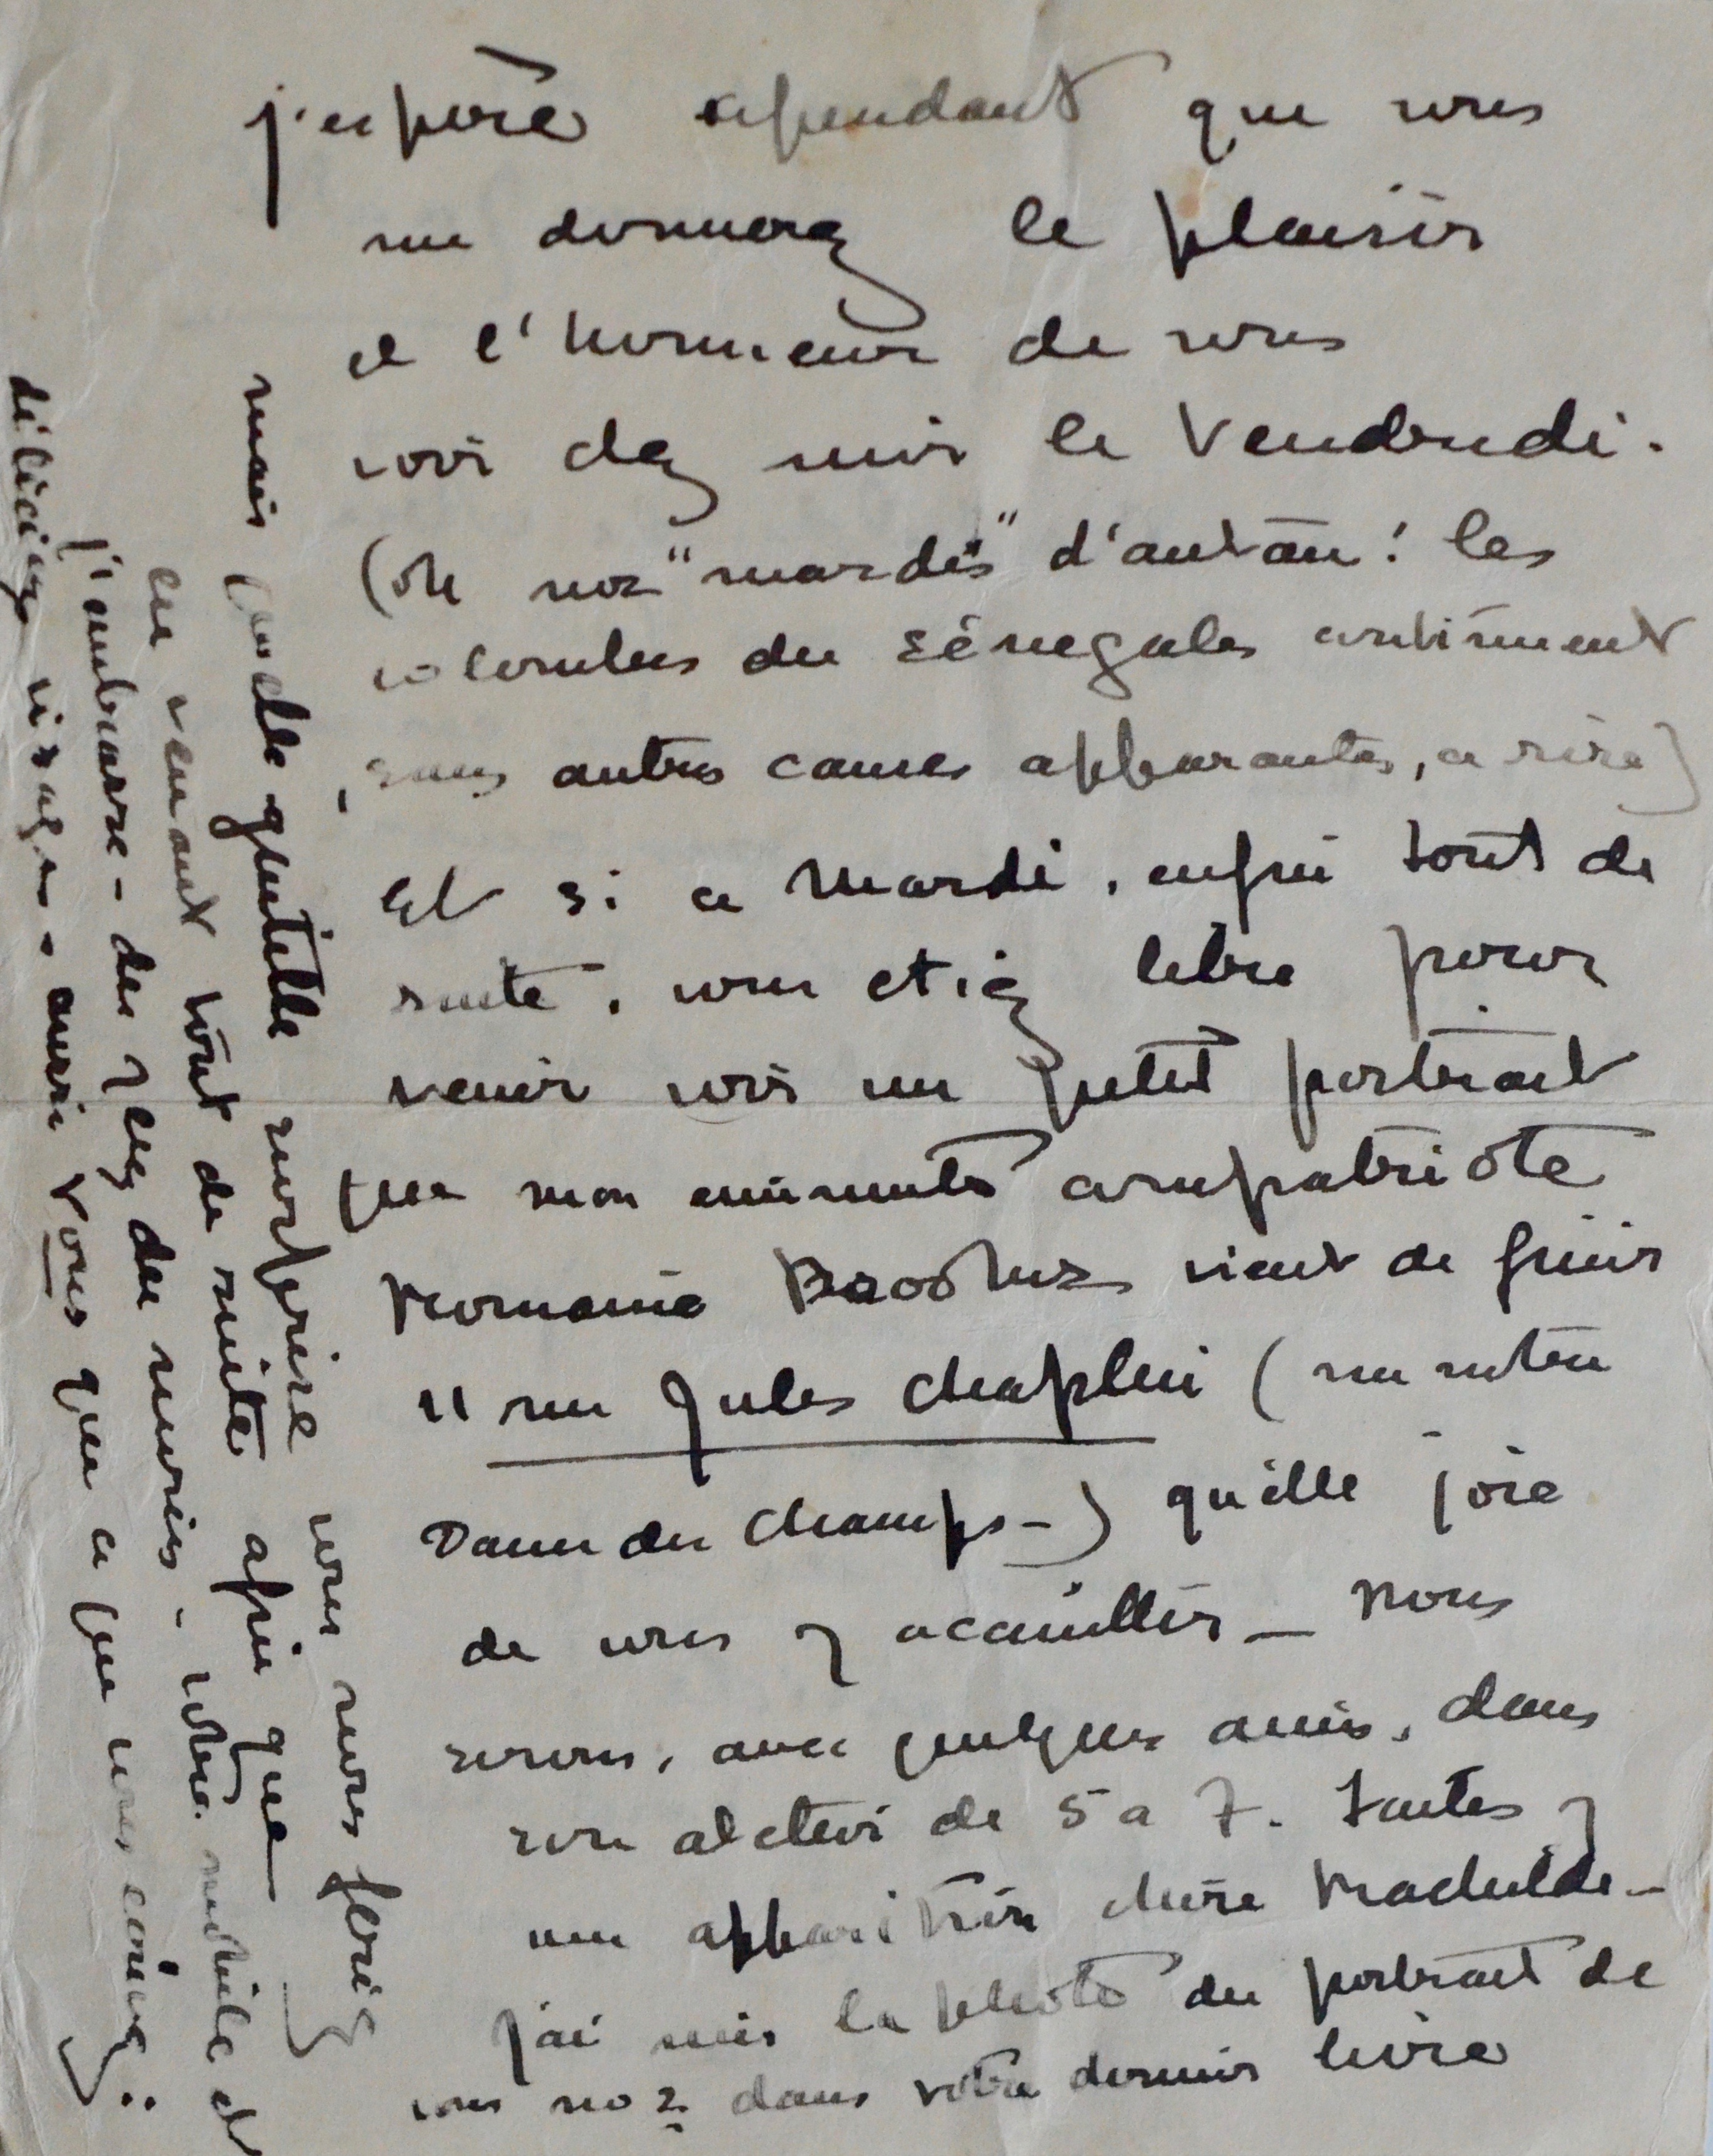 j'espère cependant que vous
me donnerez le plaisir
et l'honneur de vous
voir chez moi le Vendredi.
(oh nos "mardis" d'autan! les
colombes du Sénégales continuent
sans autres causes apparantes, a rire)
Et si ce Mardi, enfin tout de
suite, vous etiez libre pour
venir voir un petit portrait
que mon eminente compatriote
Romaine Brooks vient de finir
11 rue Jules Chaplin (rue notre
Dame des Champs -) quelle joie
de vous y acceuillir - Nous
serons, avec quelques amis, dans
son atelier de 5 a 7. Faites y
une apparition chère Rachilde -
J'ai mis la photo du portrait de
vous no 2 dans votre dernier livre
mais quelle gentille surprise vous nous feriez
en venant tout de suite afin que
j'embrasse - des yeux du moins - votre mobile et
délicieux visage - aussi vous que ce que vous écrivez..